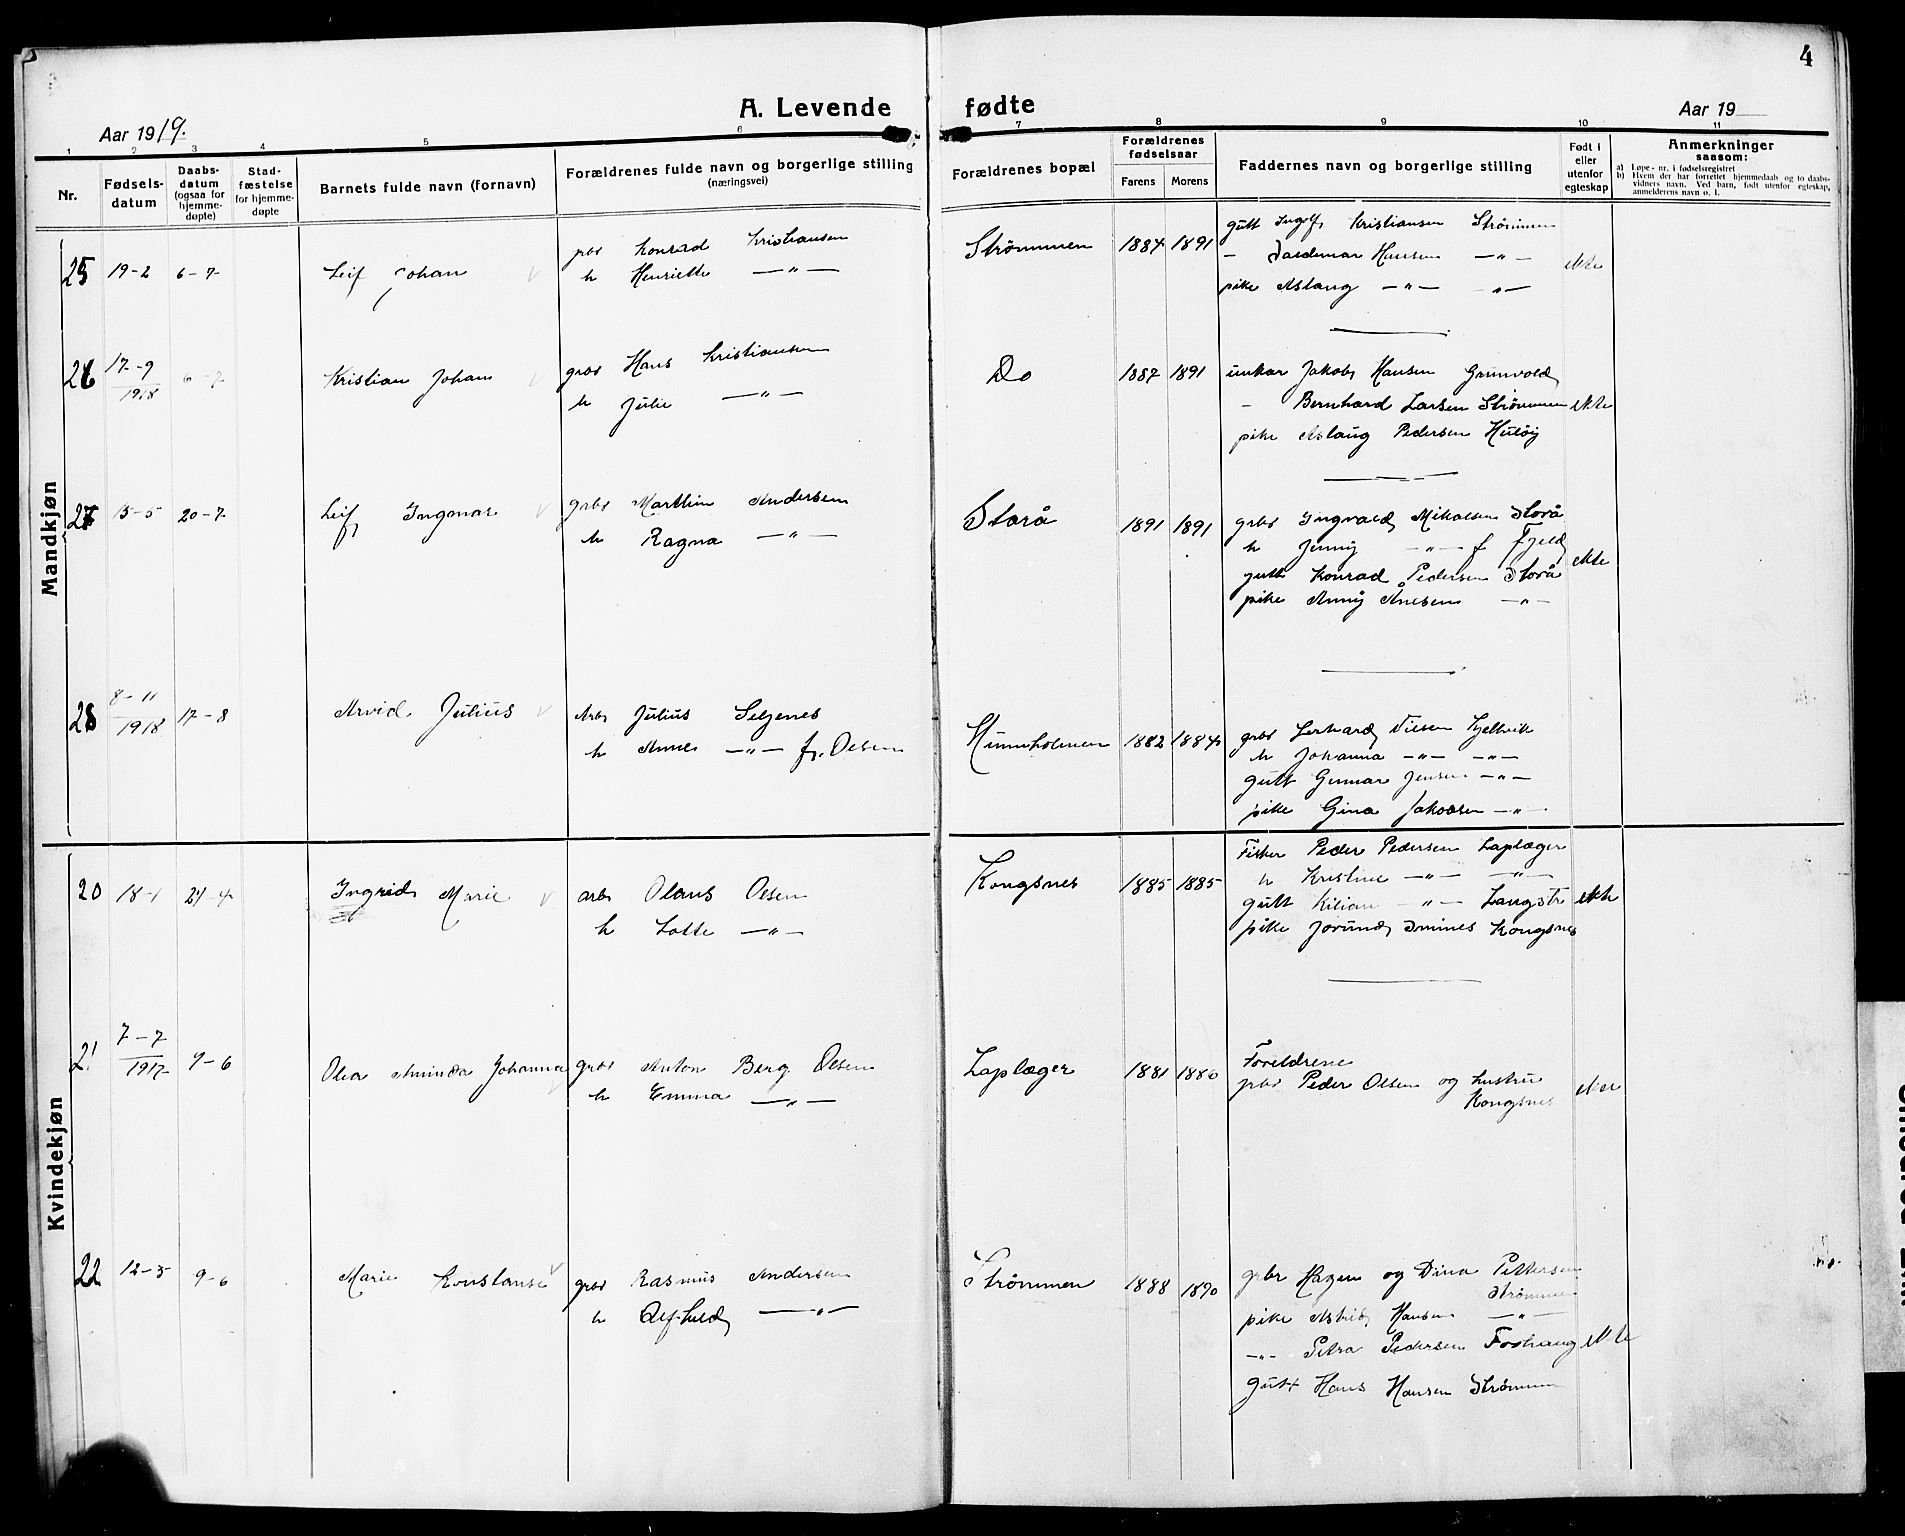 4
A. Levende fødte
Aar 1919.
Aar 19
1 2 3 4 5 6 7 8 9 10 11
Nr.
Fødsels-
datum
Daabs-
datum
(ogsaa for
hjemme-
døpte)
Stad-
fæstelse
for hjemme-
døpte
Barnets fulde navn (fornavn)
Forældrenes fulde navn og borgerlige stilling
(næringsvei)
Forældrenes bopæl
Forældrenes
fødselsaar
Farens Morens
Faddernes navn og borgerlige stilling
Født i
eller
utenfor
egteskap
Anmerkninger
saasom:
a) Løpe-nr. i fødselsregistret
b) Hvem der har forrettet hjemmedaab og to daabs-
vidners navn. Ved barn, født utenfor egteskap,
anmelderens navn o. l.
Mandkjøn
25 19-2 6-7- Leif Johan
Konrad Kristiansen
h Henriette —"—
Strømmen 1884 1891
gutt Ingolf Kristiansen Strømmen
- Valdemar Hansen —"—
pike Aslaug —"— —"—
ekte
26 17-9
1918 6-7 Kristian Johan
gbr Hans Kristiansen
h Julie —"—
Do 1887 1891
unkar Jakob Hansen
- Bernhard Larsen Strømmen ekte
pike Aslaug Pedersen Huløy
27 15-5 20-7 Leif Ingmar
gbr Marthin Andersen
h Ragna —"—
Storå 1891 1891
gbr Ingvald Mikalsen Storå
h Jenny —"— f Fjeld
gutt Konrad Pedersen Storå
pike Anny —"—
ekte
28 8-11
1918 17-8 Arvid Julius
Arb Julius Seljenes
h Anne —"— f. Olsen
1882 1884
gbr Nilsen Kjelvik
h Johanna —"— —"—
gutt Gunnar Jensen —"—
pike Gina Jakobsen —"—
Kvindekjøn
20 18-1 21-4 Ingrid Marie
arb Olaus Olsen
h Lotte —"—
Kongsnes 1885 1885
Fisker Peder Pedersen Laplæger
h Kristine —"— —"—
gutt Kilian —"— Langstr ekte
pike Jorund Kongsnes
21 7-7
1917 9-6 Olea Aminda Johanna
gbr Anton Berg Olsen
h Emma —"—
Laplæger 1881 1886
Foreldrene
gbr Peder Olsen og hustru
Kongsnes
ekte
22 12-3 9-6 Marie Konstanse
gbr Rasmus Andersen
h Alfhild —"—
Strømmen 1888 1890
gbr Hagen og Dina Pettersen
Strømmen
pike Astrid Hansen —"—
—"— Petra Pedersen ekte
gutt Hans Hansen Strømmen